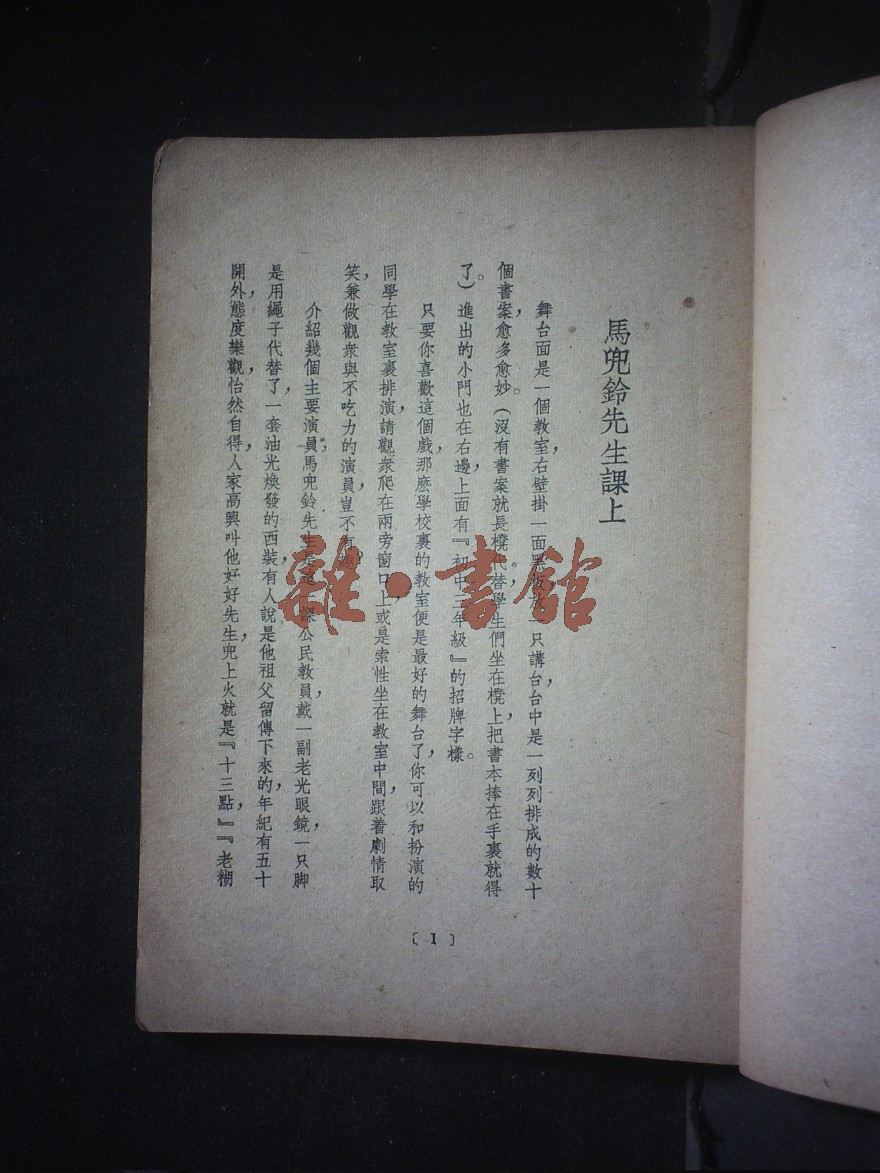 馬兜鈴先生課上
舞台面是一個教室，右壁掛一面黑板，放一只講台，台中是一列列排成的數十
個書案，愈多愈妙。（沒有書案就長櫈代替。）學生們坐在櫈上，把書本捧在手裏就得
了。進出的小門也在右邊，上面有『初中三年級』的招牌字樣。
只要你喜歡這個戲，那麽學校裏的教室便是最好的舞台了，你可以和扮演的
同學在教室裏排演，請觀衆爬在兩旁窗口上，或是索性坐在教室中間，跟着劇情取
笑，兼做觀衆與不吃力的演員，豈不有趣？
介紹幾個主要演員，馬兜鈴先生是 課公民教員，戴一副老光眼鏡，一只脚
是用繩子代替了，一套油光煥發的西裝，有人說是他祖父留傳下來的，年紀有五十
開外，態度樂觀，怡然自得，人家高興叫他好好先生，兜上火就是『十三點，』『老糊
〔1〕
雜·書館